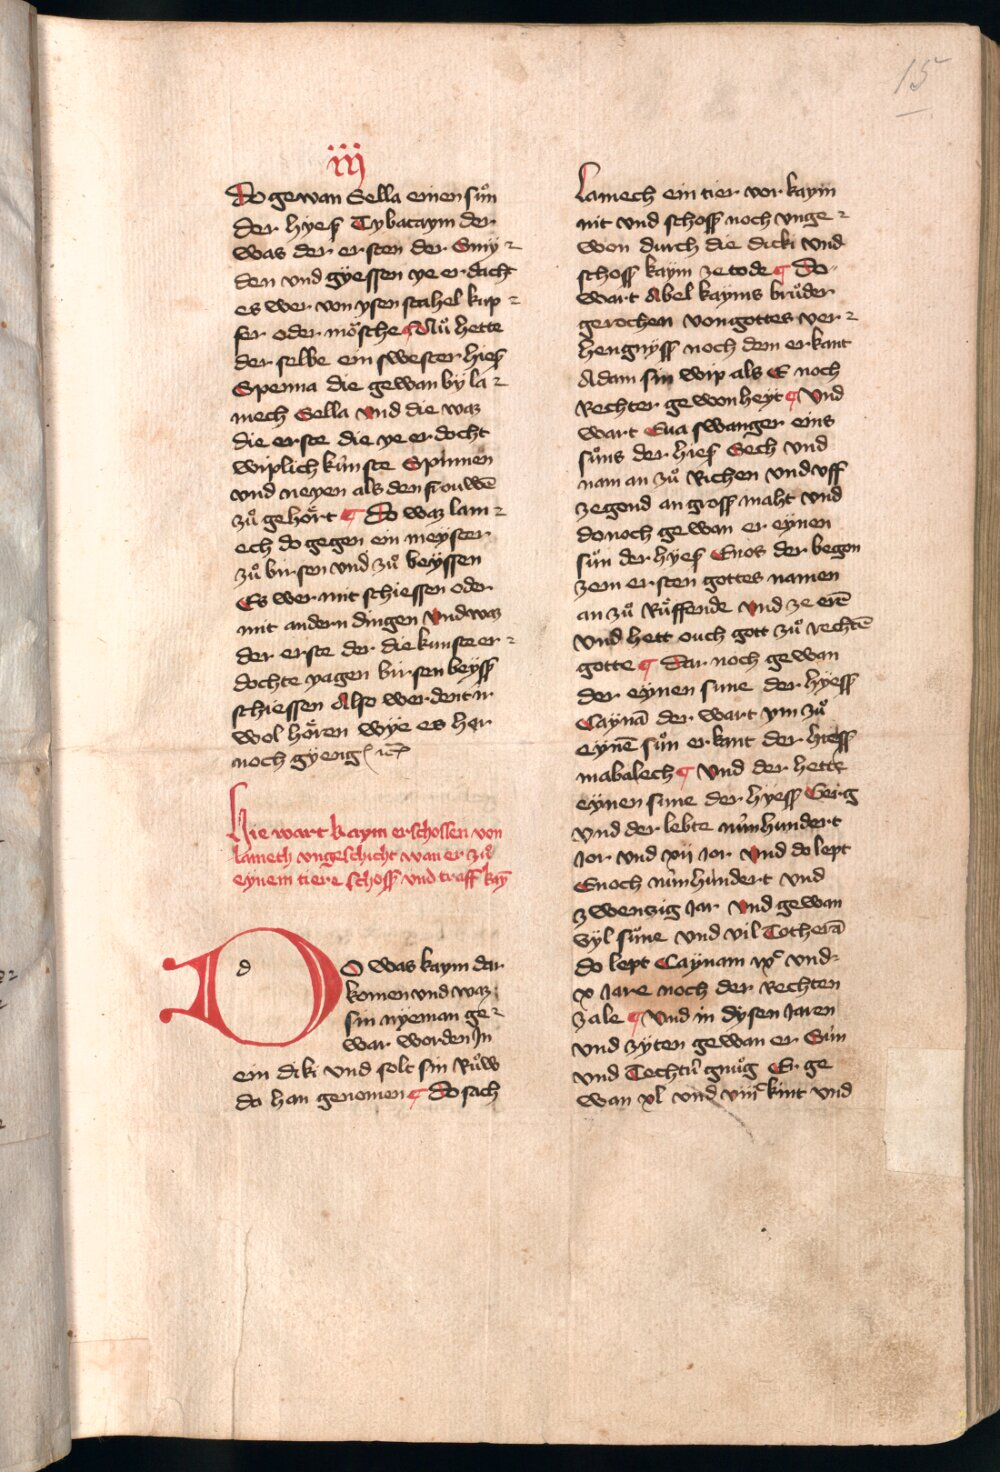 15
iij
Do gewan Sella einen sůn
der hyeß Tybacaym der
was der ersten der Smÿ⸗
den vnd gÿessen ye er dacht
es wer von ysen stahel kup⸗
fer oder mösche ¶ Nů hette
der selbe ein swester hieß
Spenna die gewan bÿ la⸗
mech Sella vnd die waz
die erste die ye er docht
wiplich kúnste Spinnen
vnd neyen als den frouwē
zů gehört ¶ Do waz lam⸗
ech do gegen ein meyster
zů birsen vnd zů beÿssen
Es wer mit schiessen oder
mit andern dingen Vnd waz
der erste der die kunste er⸗
dochte yagen birsen beÿß
schiessen Also werdent ir
wol hören wÿe es her
noch gyeng ꝛc̄
Hie wart kaym erschossen von
lameth vngeschicht wan er zů
eynem tiere schoß vnd traff kaÿ
d
DO was kaym dar
komen vnd waz
sin nÿeman ge⸗
war worden In
ein diki vnd solt sin Růw
do han genomen ¶ Do sach
Lamech ein tier vor kaym
nit vnd schoß noch vnge⸗
won durch die dicki vnd
schoß kaym ze tode ¶ Do
wart Abel kayms brůder
gerochen von gottes ver⸗
hengnÿß noch dem erkant
Adam sin wip als Es noch
Rechter gewonheyt ¶ Vnd
wart Eua swanger eins
sůns der hieß Sech vnd
nam an zů Richen vnd vff
zegend an groß maht vnd
donoch gewan er eynen
sůn der hyeß Enos der began
zem ersten gottes namen
an zů Růffende Vnd ze erē
Vnd hett ouch gott zů rechtē
gotte ¶ Dar noch gewan
der eÿnen sune der hÿeß
Caÿnā der wart ym zů
eÿnē sůn erkant der hieß
mabalech ¶ Vnd der hette
eÿnen sune der hÿeß Gerg
vnd der lebte núnhundert
Jor vnd xij Jor Vnd do lept
Enoch núnhundert vnd
zwenzig Jar Vnd gewan
vÿl sůne vnd vil Totherā
do lept Caÿnam ixᶜ vnd
x Jare noch der Rechten
zale ¶ Vnd in dÿsen Jaren
vnd zÿten gewan er Sún
vnd Techtú gnůg Er ge
wan xl vnd viijᶜ kint vnd